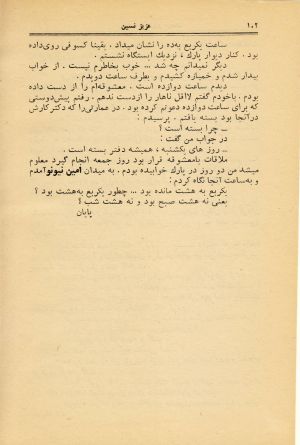 ۱۰۲
عزیز نسین
ساعت یکربع بده را نشان میداد . یقینا کسوفی روی‌داده
بود . کنار دیوار پارك ، نزدیك ایستگاه نشستم .
دیگر نمیدانم چه شد ... خوب بخاطرم نیست . از خواب
بیدار شدم و خمیازه کشیدم و بطرف ساعت دویدم .
دیدم ساعت دوازده است . معشوقه‌ام را از دست داده
بودم . باخودم گفتم لااقل ناهار را ازدست ندهم . رفتم پیش‌دوستی
که برای ساعت دوازده دعوتم کرده بود . در عمارتی‌را که دفترکارش
درآنجا بود بسته یافتم . پرسیدم :
ــ چرا بسته است ؟
در جواب من گفت :
ــ روز های یکشنبه ، همیشه دفتر بسته است .
ملاقات بامعشوقه قرار بود روز جمعه انجام گیرد معلوم
میشد من دو روز در پارك خوابیده بودم . به میدان امین نیونو آمدم
و به‌ساعت آنجا نگاه کردم :
یکربع به هشت مانده بود ... چطور یکربع به‌هشت بود ؟
یعنی نه هشت صبح بود و نه هشت شب ؟
پایان